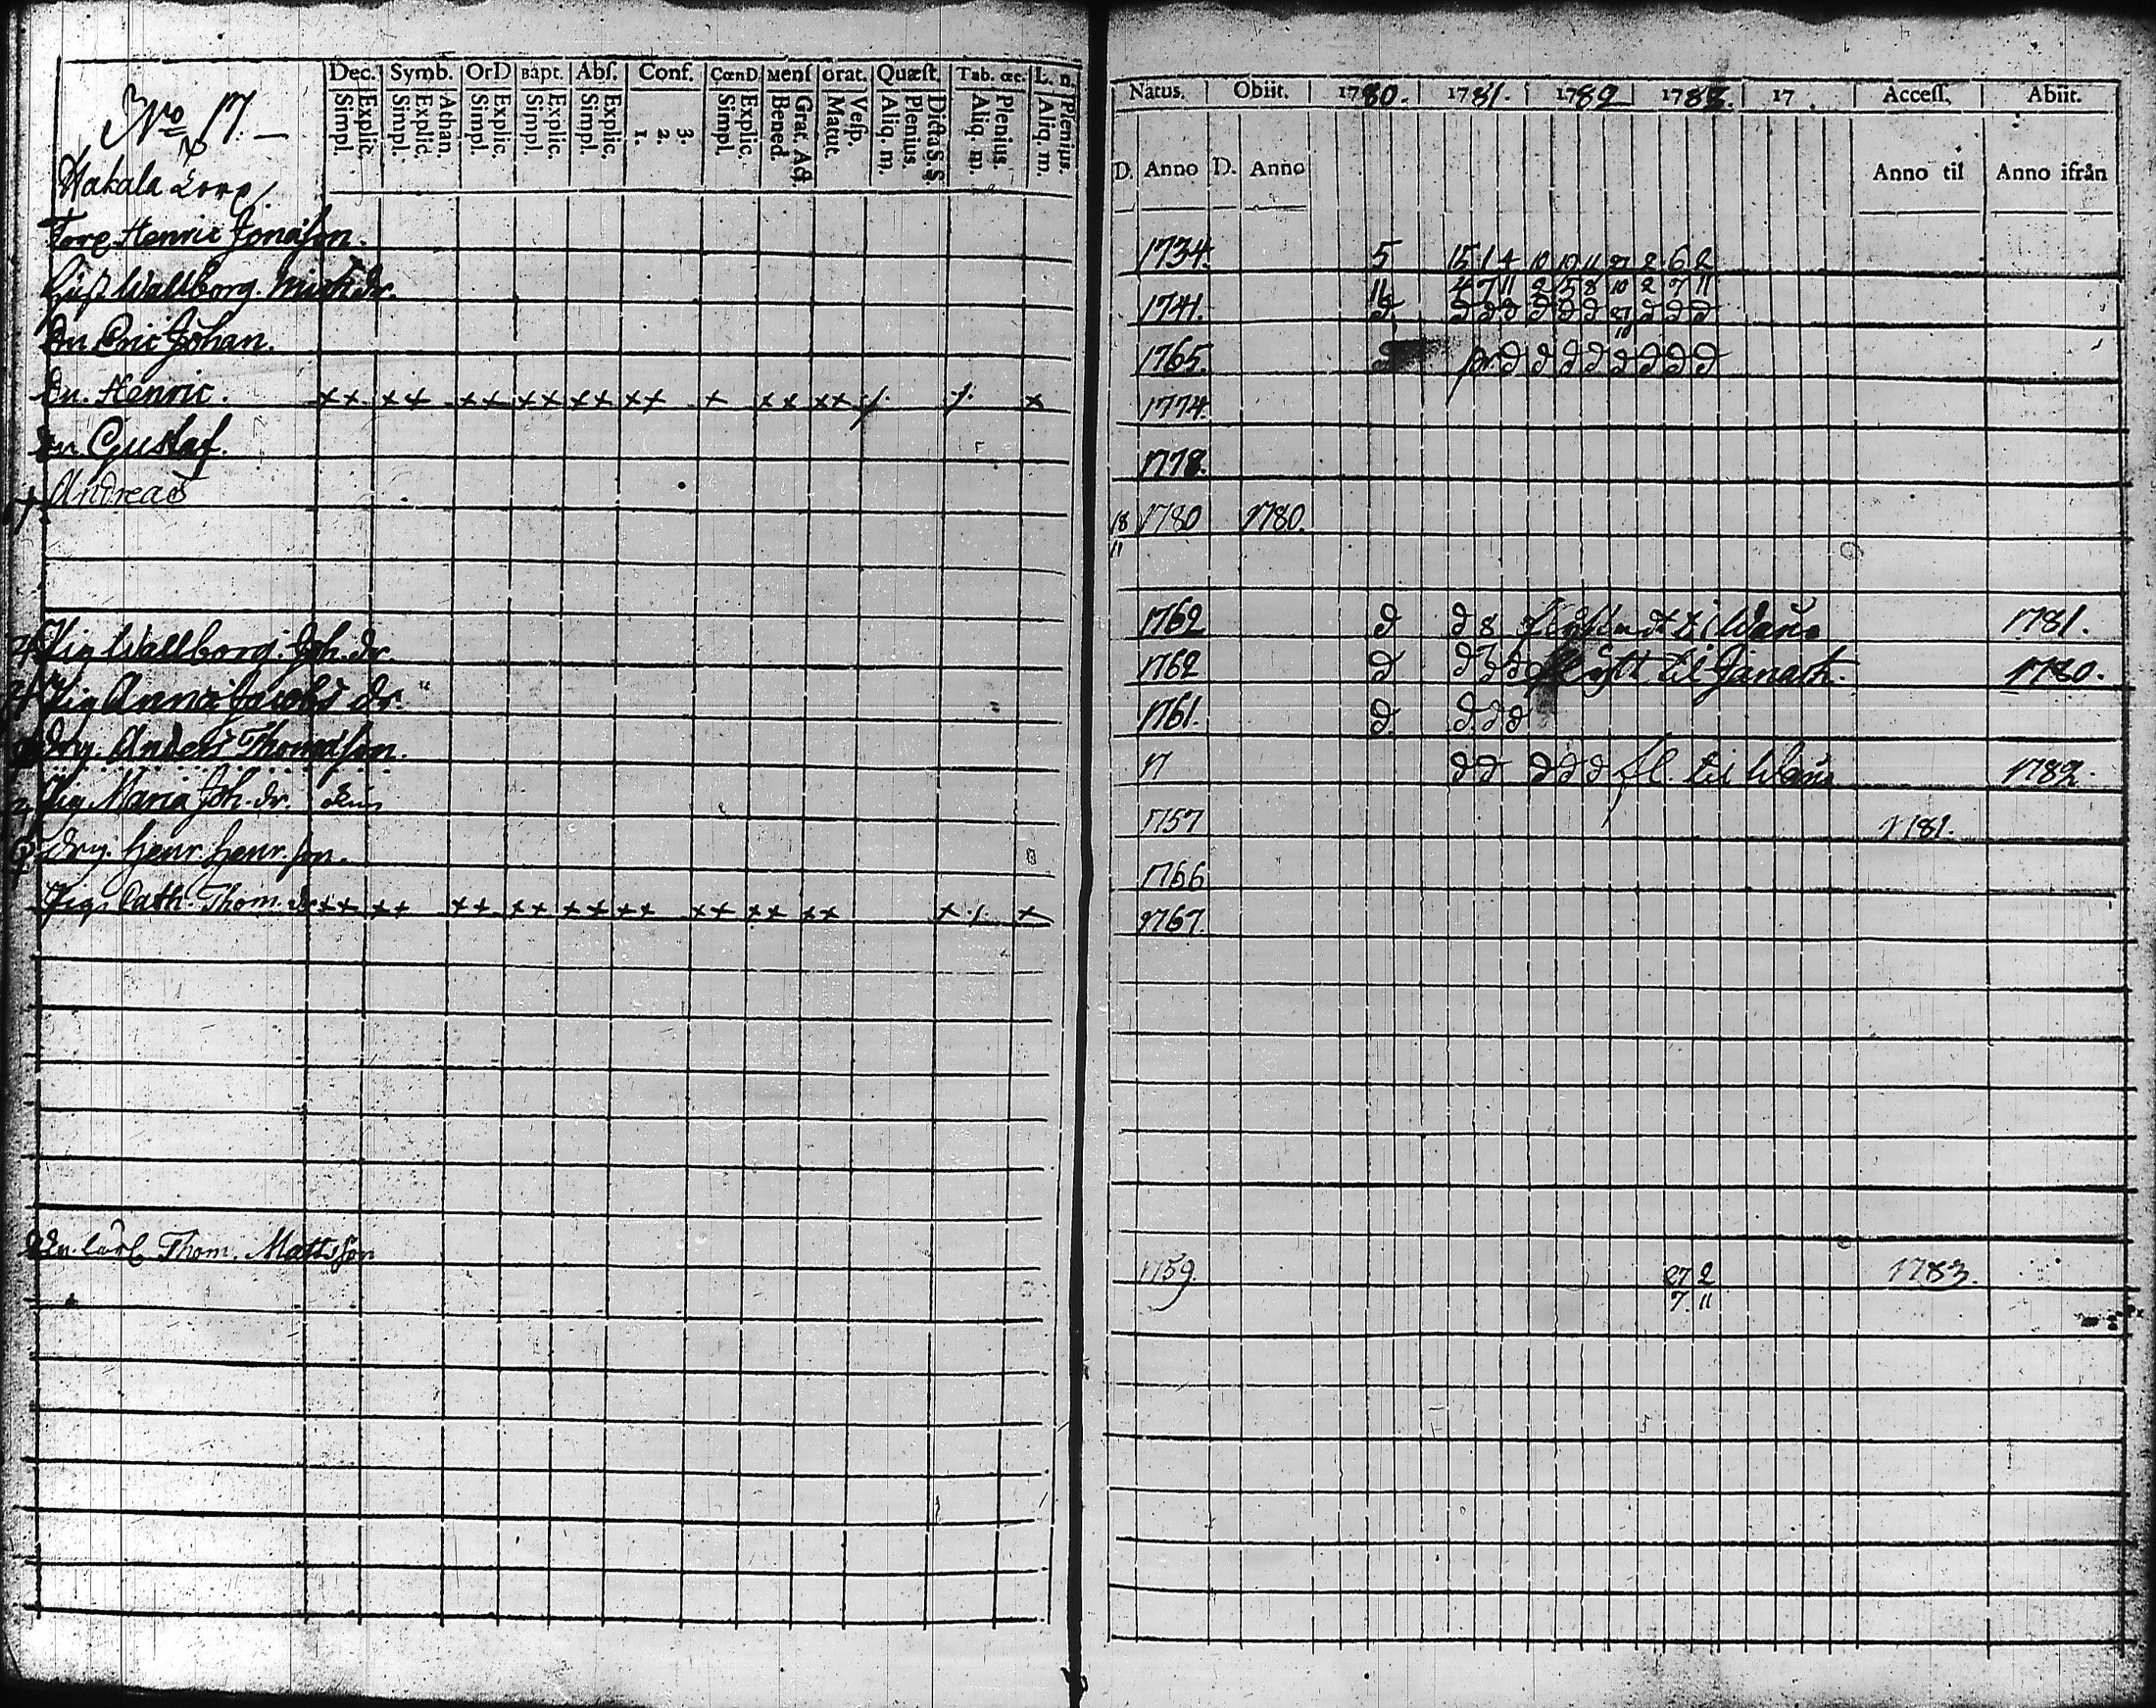 Dec. Symb. OrD Bapt. Abs. Conf. CœnD Mens orat. Quæst. Tab. œc. L. n
Simpl. Explic. Simpl. Explic. Athan. Simpl. Explic. Simpl. Explic. Simpl. Explic. 1. 2. 3. Simpl. Explic. Bened. Grat. Act. Matut. Vesp. Aliq. m. Plenius. Dicta S. S. Aliq. m. Plenius. Aliq. m. Plenius.
No 17
Hakala Torp
Torp. Henric Jonasson.
Hust Wallborg. Mich. dr.
Sn Eric Johan.
Sn. Henric. ×× ×× ×× ×× ×× ×× × ×× ×× ×
Sn Gustaf.
Andreas
Pig Wallborg. Joh. dr.
Pig Anna Jacobs dr.
Drg. Anders Thomasson.
Pig Maria Joh. dr.
Drg. Henr. Henr. son.
Pig. Cath. Thom. dr ×× ×× ×× ×× ×× ×× ×× ×× ×× × ×
Thom. Mattsson
Natus. Obiit. 1780. 1781. 1782 1783. 17 Access. Abiit.
D. Anno D. Anno Anno til Anno ifrån
1734. 5 15 1 4 10 10 11 21 2 6 2
11 4 7 11 2 5 8 10 2 7 11
1741. d d d d d d d d d d
1765. d d d d d d d d d
1774.
1778.
18 1780 1780.
11
1762 d d 8 1781.
1762 d d d d flytt til 1780.
1761. d. d. d d
17 d d d d d fl. til 1782.
1757 1781.
1766
1767.
1759. 27 2 1783.
7. 11